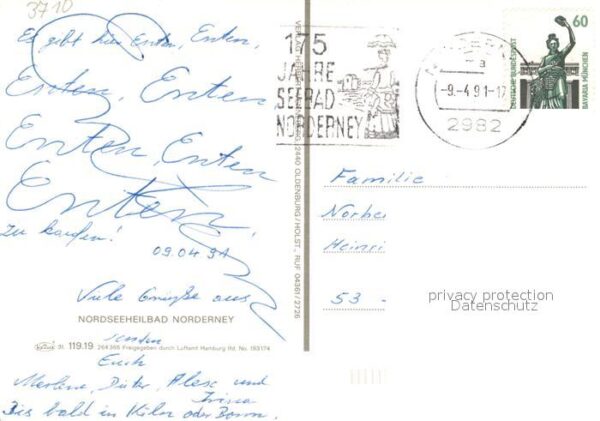 3710
Es gibt hier Enten, Enten,
Enten, Enten
Enten, Enten
Enten
zu kaufen!
09.04.91
Viele Grüße aus
NORDSEEHEILBAD NORDERNEY
senden
Euch
Marlene, Dieter, Alex und
Bis bald in Köln oder Bonn.
31. 119.19 264365 Freigegeben durch Luftamt Hamburg lfd. No. 193174
2440 OLDENBURG/HOLST., RUF 04361/2726
175
JAHRE
SEEBAD
NORDERNEY
-9.-4.91-17
2982
60
DEUTSCHE BUNDESPOST
BAVARIA MÜNCHEN
Familie
Norbe
Heinri
53 -
privacy protection
Datenschutz